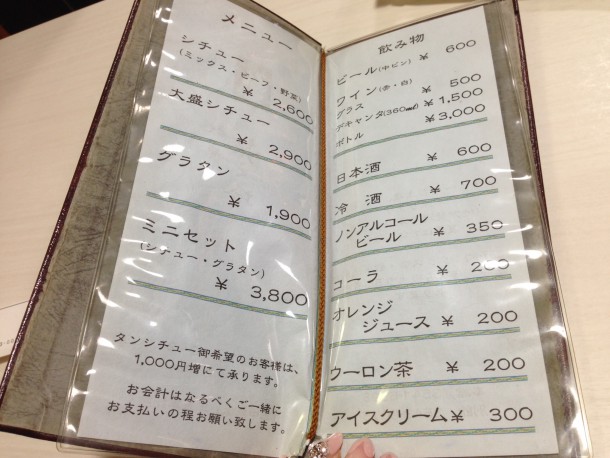 メニュー
シチュー
(ミックス・ビーフ・野菜)
¥ 2,600
大盛シチュー
¥ 2,900
グラタン
¥ 1,900
ミニセット
(シチュー・グラタン)
¥ 3,800
タンシチュー御希望のお客様は、
1,000円増にて承ります。
お会計はなるべくご一緒に
お支払いの程お願い致します。
飲み物
ビール(中ビン) ¥ 600
ワイン(赤・白)
グラス ¥ 500
デキャンタ(360㎖) ¥ 1,500
ボトル ¥ 3,000
日本酒 ¥ 600
冷 酒 ¥ 700
ノンアルコール
ビール ¥ 350
コーラ ¥ 200
オレンジ
ジュース ¥ 200
ウーロン茶 ¥ 200
アイスクリーム ¥ 300